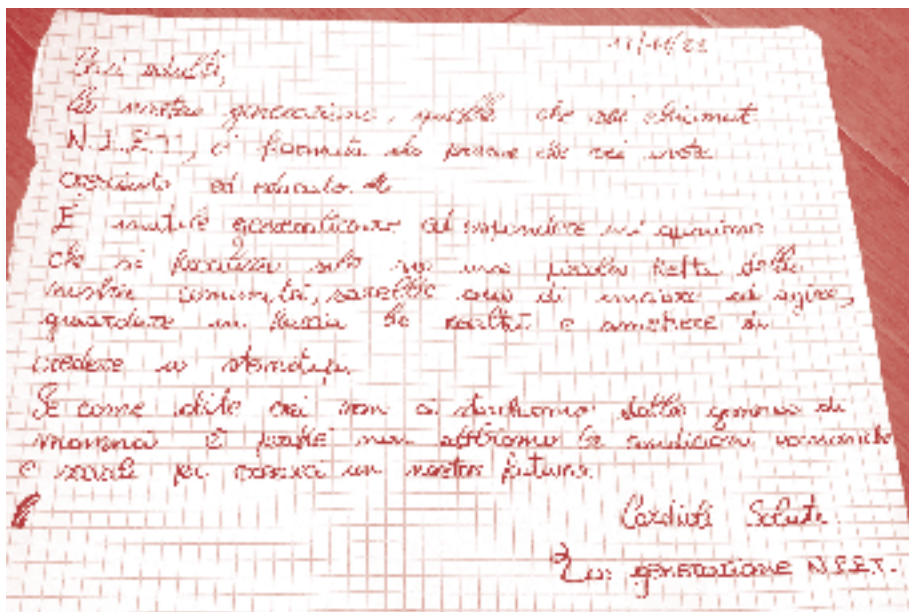 11/11/22
Cari adulti,
la nostra generazione, quella che voi chiamate
N.E.E.T, è formata da persone che voi avete
cresciuto ed educato.
È inutile generalizzare ed espandere un'opinione
che si focalizza solo su una piccola fetta della
nostra comunità, sarebbe ora di iniziare ad agire,
guardare in faccia la realtà e smettere di
credere a stereotipi.
Se come dite voi non ci stacchiamo dalla gonna di
mamma è perché non abbiamo le condizioni economiche
e sociali per crearci un nostro futuro.
Cordiali Saluti
generazione N.E.E.T.